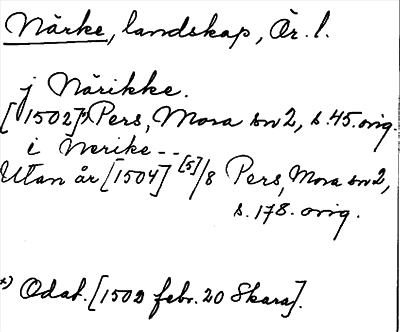 Närke, landskap, Ör. l.
j Närikke.
[1502]*) Pers, Mora sn 2, s. 45. orig.
i Nerike --
Utan år [1504] [5]/8 Pers, Mora sn 2,
s. 178. orig.
*) Odat. [1502 febr. 20 Skara].